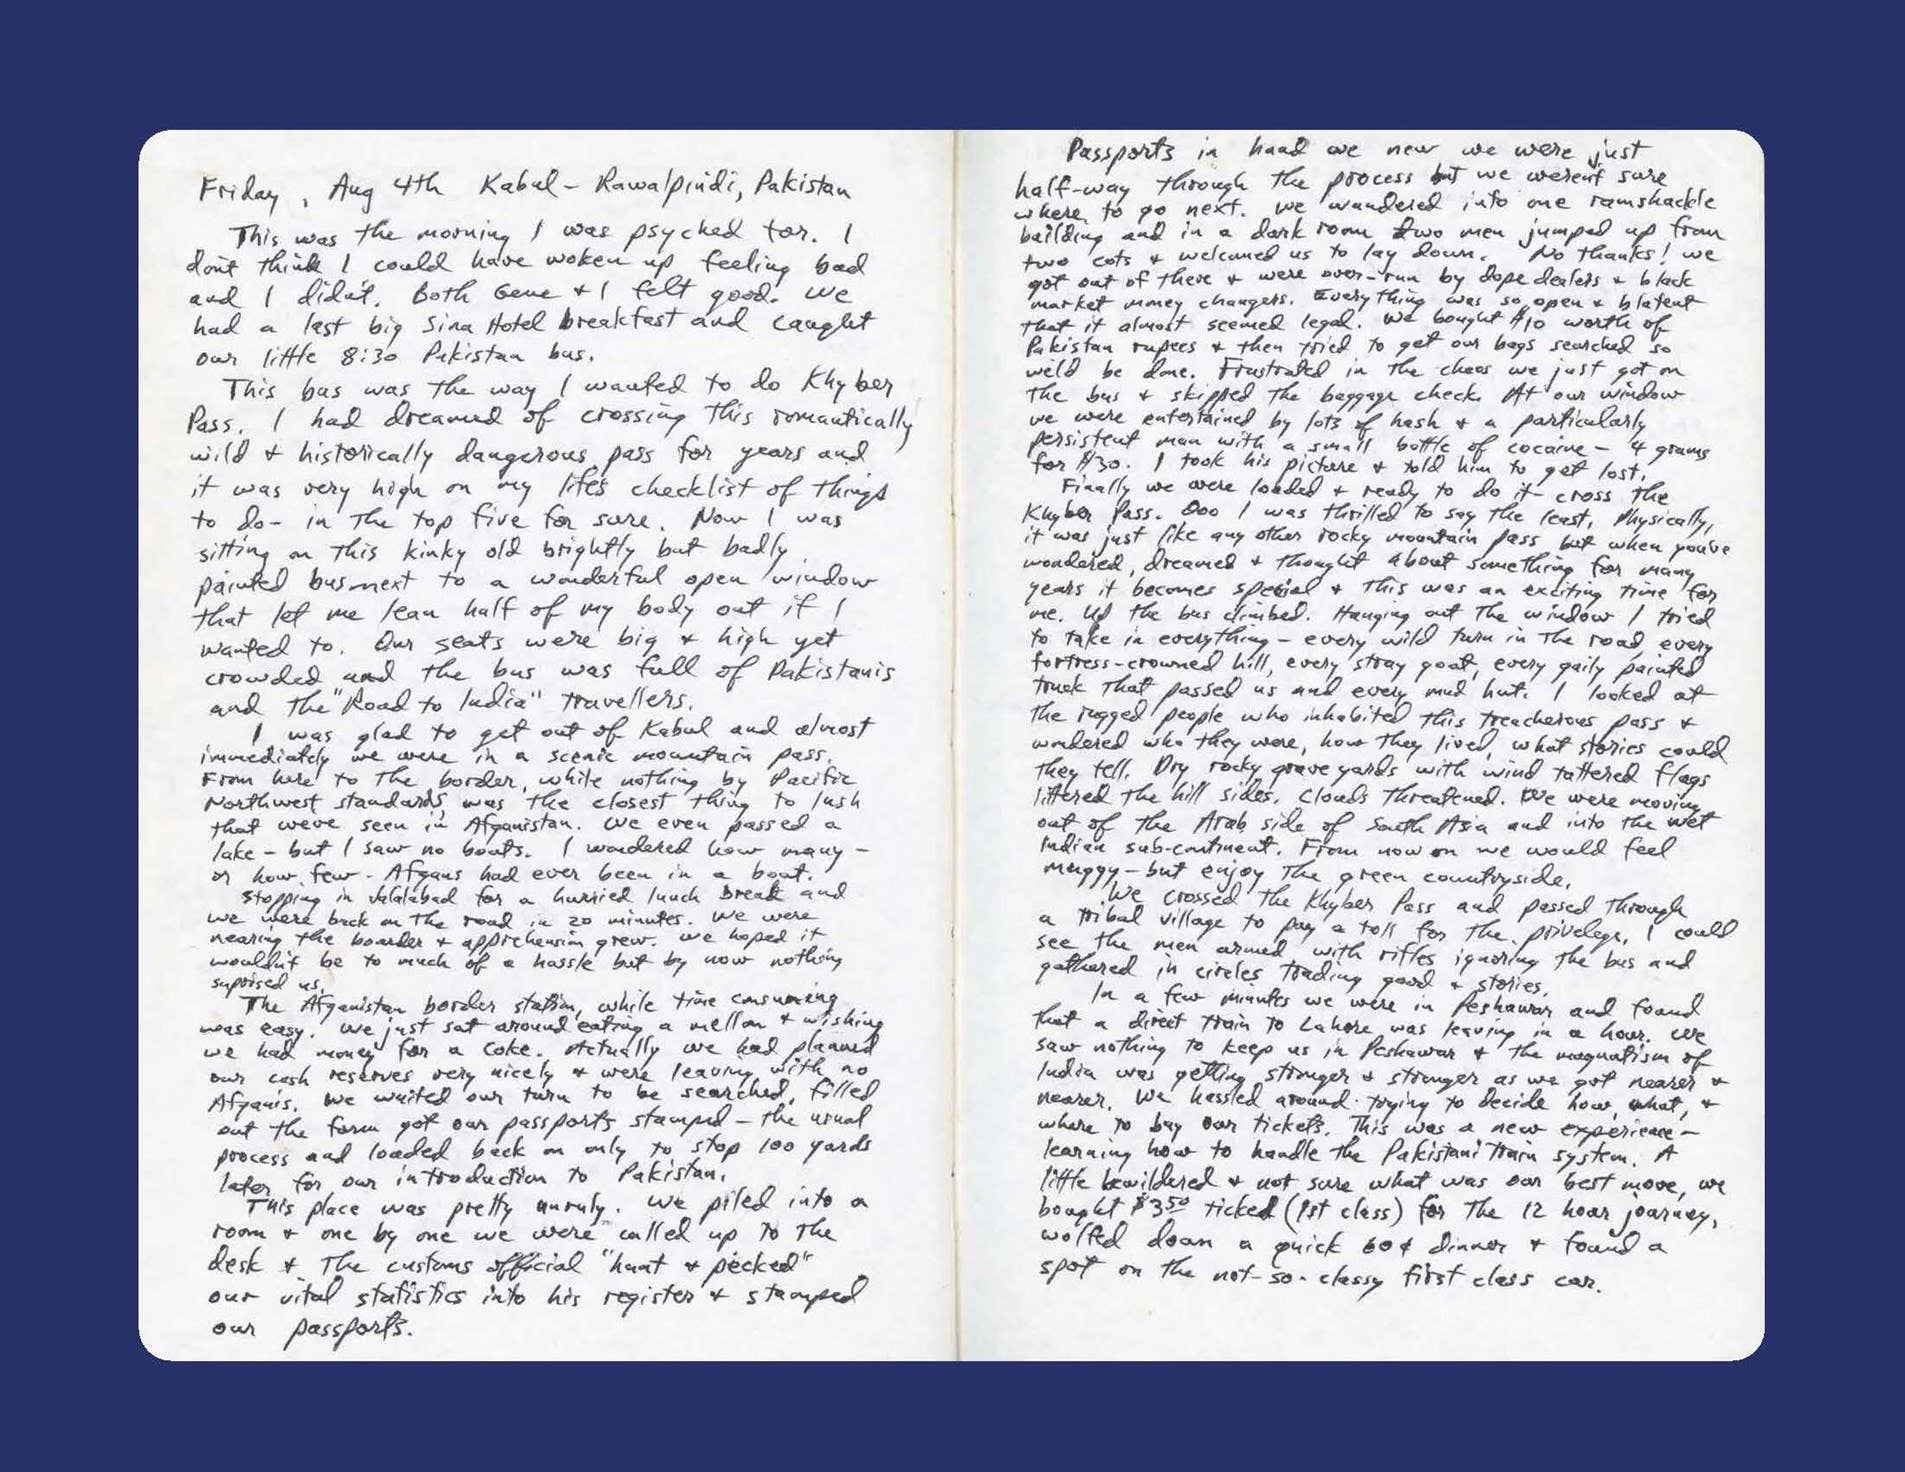 Friday, Aug 4th Kabul - Rawalpindi, Pakistan
This was the morning I was psyched for. I
don't think I could have woken up feeling bad
and I didn't. Both Gene + I felt good. We
had a last big Sina Hotel breakfast and caught
our little 8:30 Pakistan bus.
This bus was the way I wanted to do Khyber
Pass. I had dreamed of crossing this romantically
wild + historically dangerous pass for years and
it was very high on my life's checklist of things
to do - in the top five for sure. Now I was
sitting on this kinky old brightly but badly
painted bus next to a wonderful open window
that let me lean half of my body out if I
wanted to. Our seats were big + high yet
crowded and the bus was full of Pakistanis
and the "Road to India" travellers.
I was glad to get out of Kabul and almost
immediately we were in a scenic mountain pass.
From here to the border, while nothing by Pacific
Northwest standards, was the closest thing to lush
that were seen in Afganistan. We even passed a
lake - but I saw no boats. I wondered how many -
or how few - Afgans had ever been in a boat.
Stopping in Jalalabad for a hurried lunch break and
we were back on the road in 20 minutes. We were
nearing the boarder + apprehension grew. We hoped it
wouldn't be to much of a hassle but by now nothing
suprised us.
The Afganistan border station, while time consuming
was easy. We just sat around eating a mellon + wishing
we had money for a Coke. Actually we had planned
our cash reserves very nicely + were leaving with no
Afganis. We waited our turn to be searched, filled
out the form got our passports stamped - the usual
process and loaded back on only to stop 100 yards
later for our introduction to Pakistan.
This place was pretty unruly. We piled into a
room + one by one we were called up to the
desk + the customs official "hunt + pecked"
our vital statistics into his register + stamped
our passports.
Passports in hand we new we were just
half-way through the process but we weren't sure
where to go next. We wandered into one ramshackle
building and in a dark room two men jumped up from
two cots + welcomed us to lay down. No thanks! We
got out of there + were over-run by dope dealers + black
market money changers. Everything was so open + blatent
that it almost seemed legal. We bought $10 worth of
Pakistan rupees + then tried to get our bags searched so
we'd be done. Frustrated in the chaos we just got on
the bus + skipped the baggage check. At our window
we were entertained by lots of hash + a particularly
persistent man with a small bottle of cocaine - 4 grams
for $30. I took his picture + told him to get lost.
Finally we were loaded + ready to do it - cross the
Khyber Pass. Ooo I was thrilled to say the least. Physically,
it was just like any other rocky mountain pass but when you've
wondered, dreamed + thought about something for many
years it becomes special + this was an exciting time for
me. Up the bus climbed. Hanging out the window I tried
to take in everything - every wild turn in the road, every
fortress-crowned hill, every stray goat, every gaily painted
truck that passed us and every mud hut. I looked at
the rugged people who inhabited this treacherous pass +
wondered who they were, how they lived, what stories could
they tell. Dry rocky graveyards with wind tattered flags
littered the hill sides. Clouds threatened. We were moving
out of the Arab side of South Asia and into the wet
Indian sub-continent. From now on we would feel
muggy - but enjoy the green countryside.
We crossed the Khyber Pass and passed through
a tribal village to pay a toll for the privelege. I could
see the men armed with rifles ignoring the bus and
gathered in circles trading good + stories.
In a few minutes we were in Peshawar and found
that a direct train to Lahore was leaving in a hour. We
saw nothing to keep us in Peshawar + the magnatism of
India was getting stronger + stronger as we got nearer +
nearer. We hassled around trying to decide how, what, +
where to buy our tickets. This was a new experience -
learning how to handle the Pakistani train system. A
little bewildered + not sure what was our best move, we
bought $3.50 ticked (1st class) for the 12 hour journey,
wolfed down a quick 60¢ dinner + found a
spot on the not-so-classy first class car.